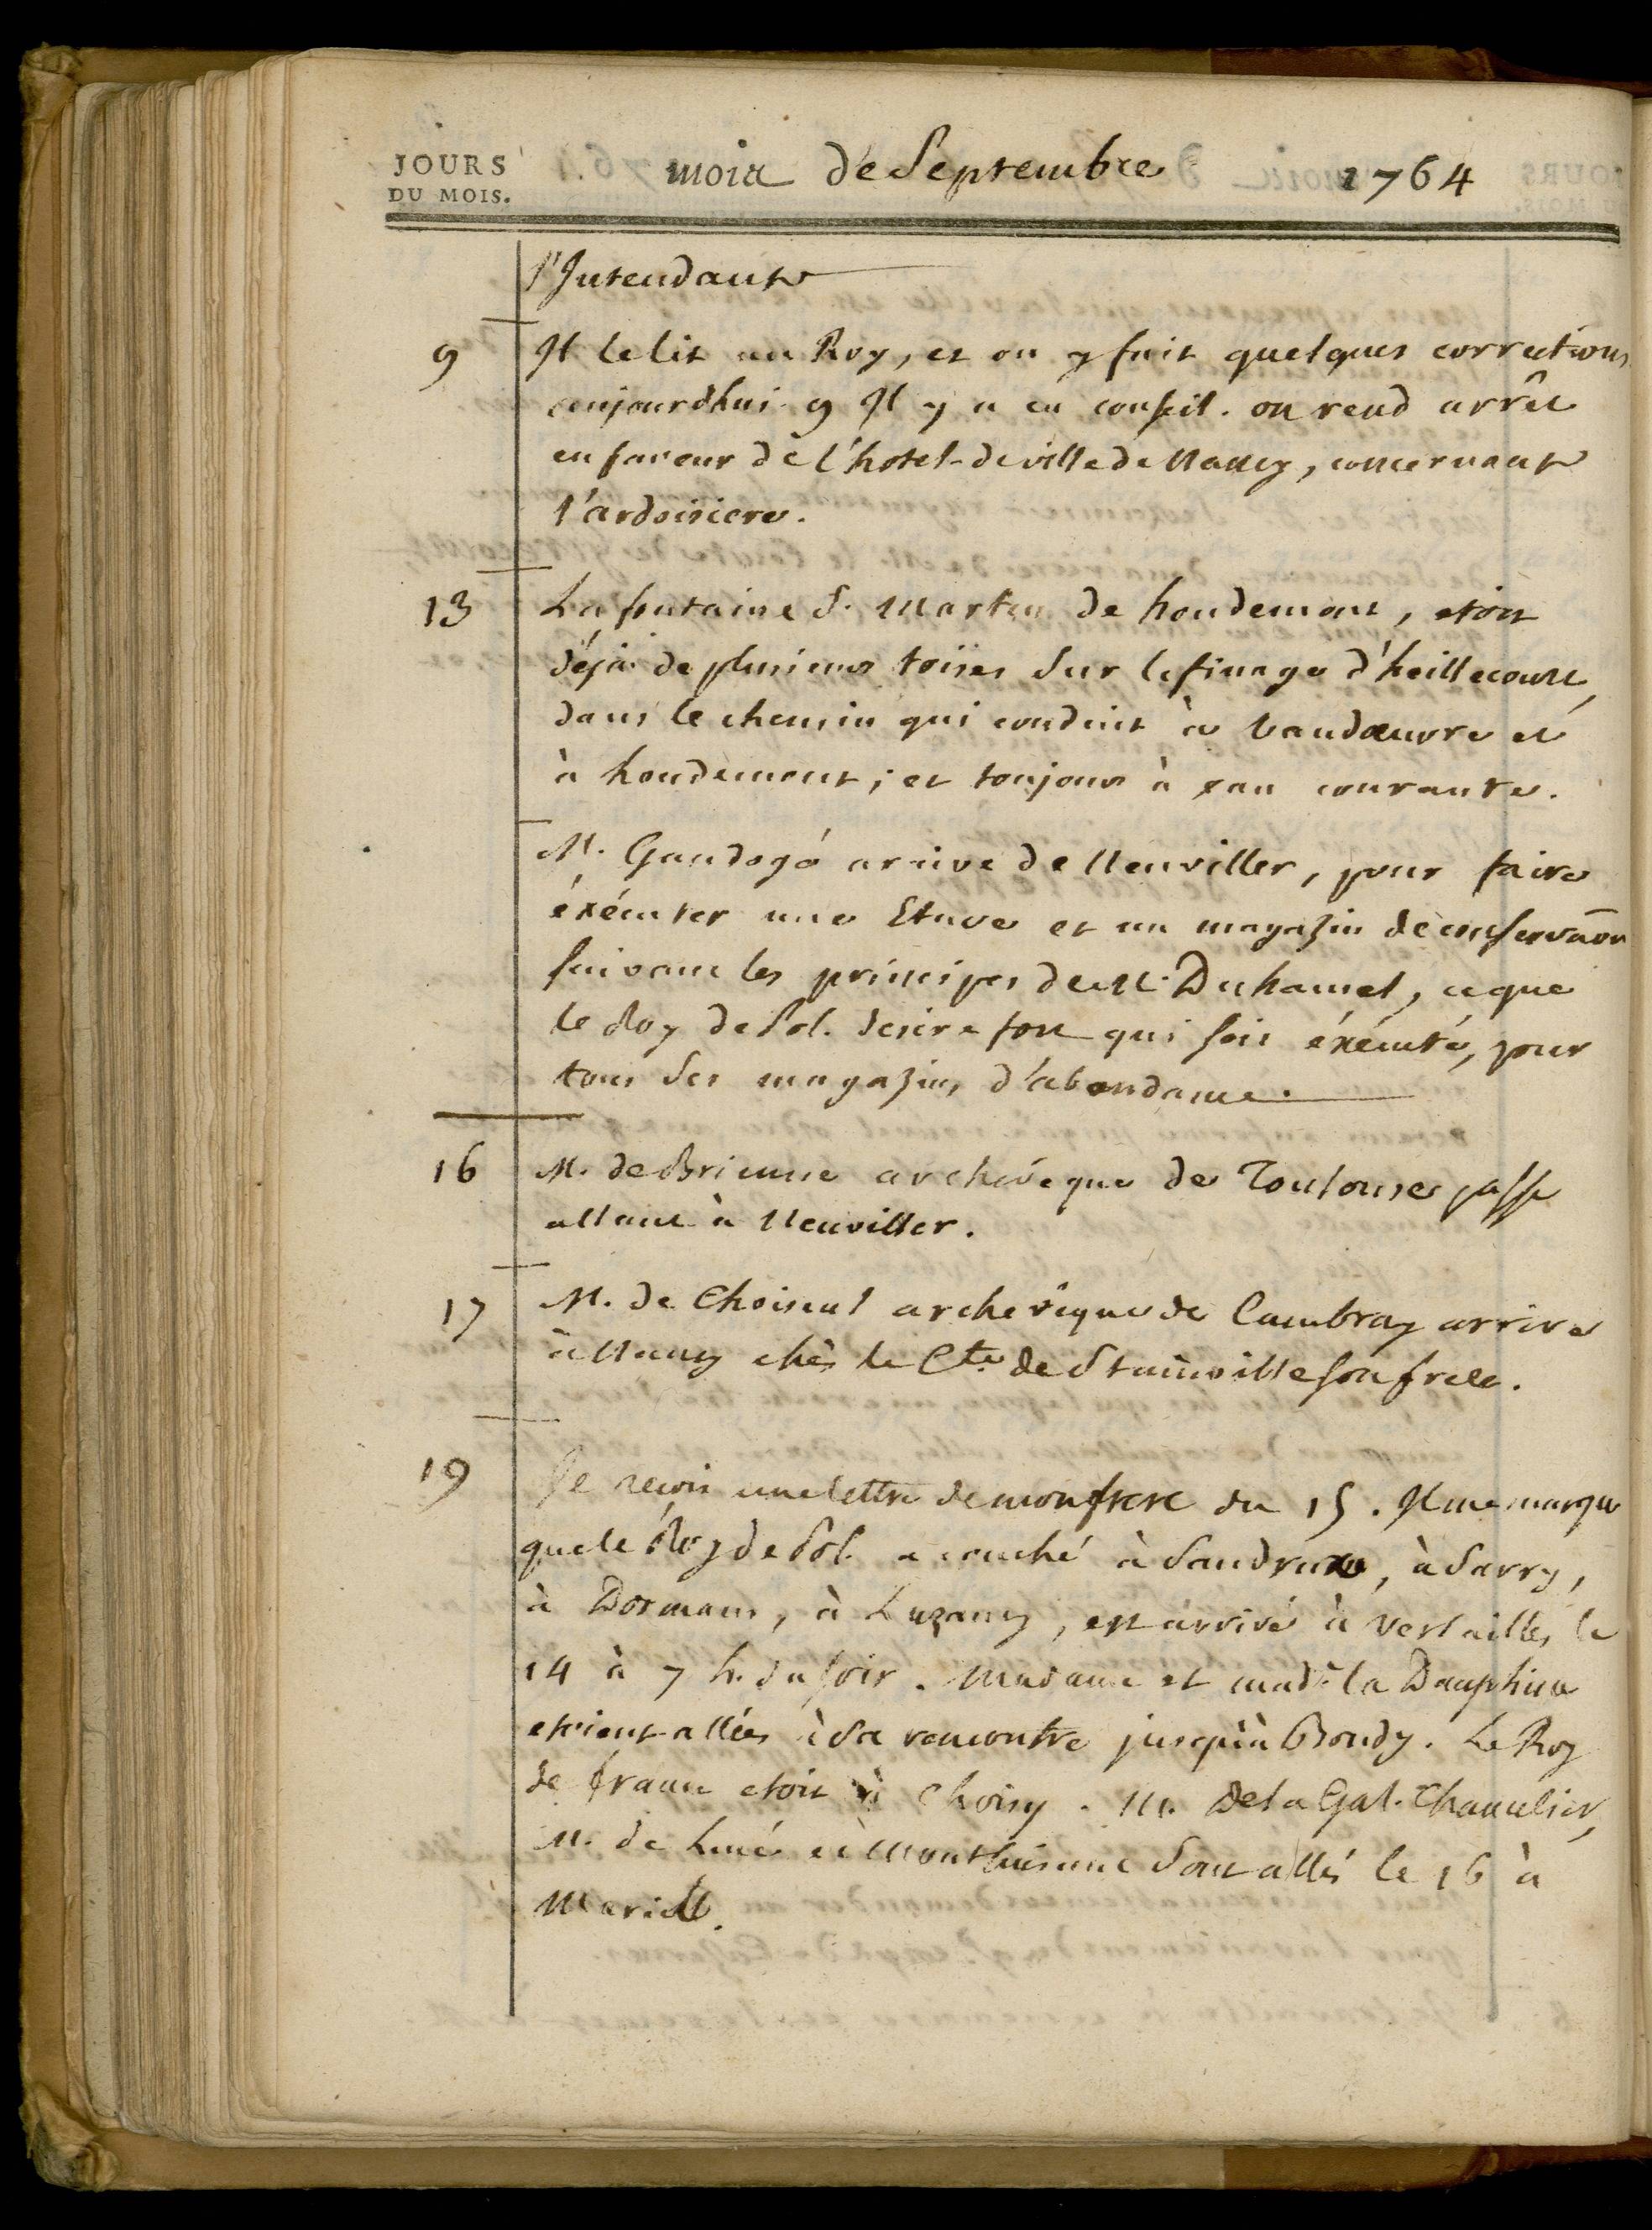 JOURS
DU MOIS.
mois de Septembre 1764
l'Intendant
9 Il le lit au Roy, et on y fait quelques corrections
aujourdhui 9 Il y a eu conseil. on rend arrêt
en faveur de l'hotel-de ville de Nancy, concernant
l'ardoisiere.
13 La fontaine S. Martin de houdemont, etoit
déja de plusieurs toises sur le finage d'heillecourt,
dans le chemin qui conduit à Vandœuvre et
à houdemont; et toujours à eau courante.
M. Gandogé arrive de Neuviller, pour faire
éxécuter une Etuve et un magazin de conservaōn
suivant les principes de M. Duhamel, ce que
le Roy de Pol. desire fort qui soit éxécuté, pour
tous ses magazins d'abondance.
16 M. de Brienne archévêque de Toulouse passe
allant à Neuviller.
17 M. de Choiseul archevêque de Cambray arrive
à Nancy chès le Cte. de Stainville son frere.
19 Je recois une lettre de mon frere du 15. Il me marque
que le Roy de Pol. a couché à Sandrux, à Sarry,
à Dormans, à Luzancy, est arrivé à Versailles le
14 à 7 h. du soir. Madame et mad.e la Dauphine
etoient allées à sa rencontre jusqu'à Bondy. Le Roy
de france etoit à Choisy. M. De la Gal. Chancelier,
M. de Lucé et Montluisant sont allés le 16 à